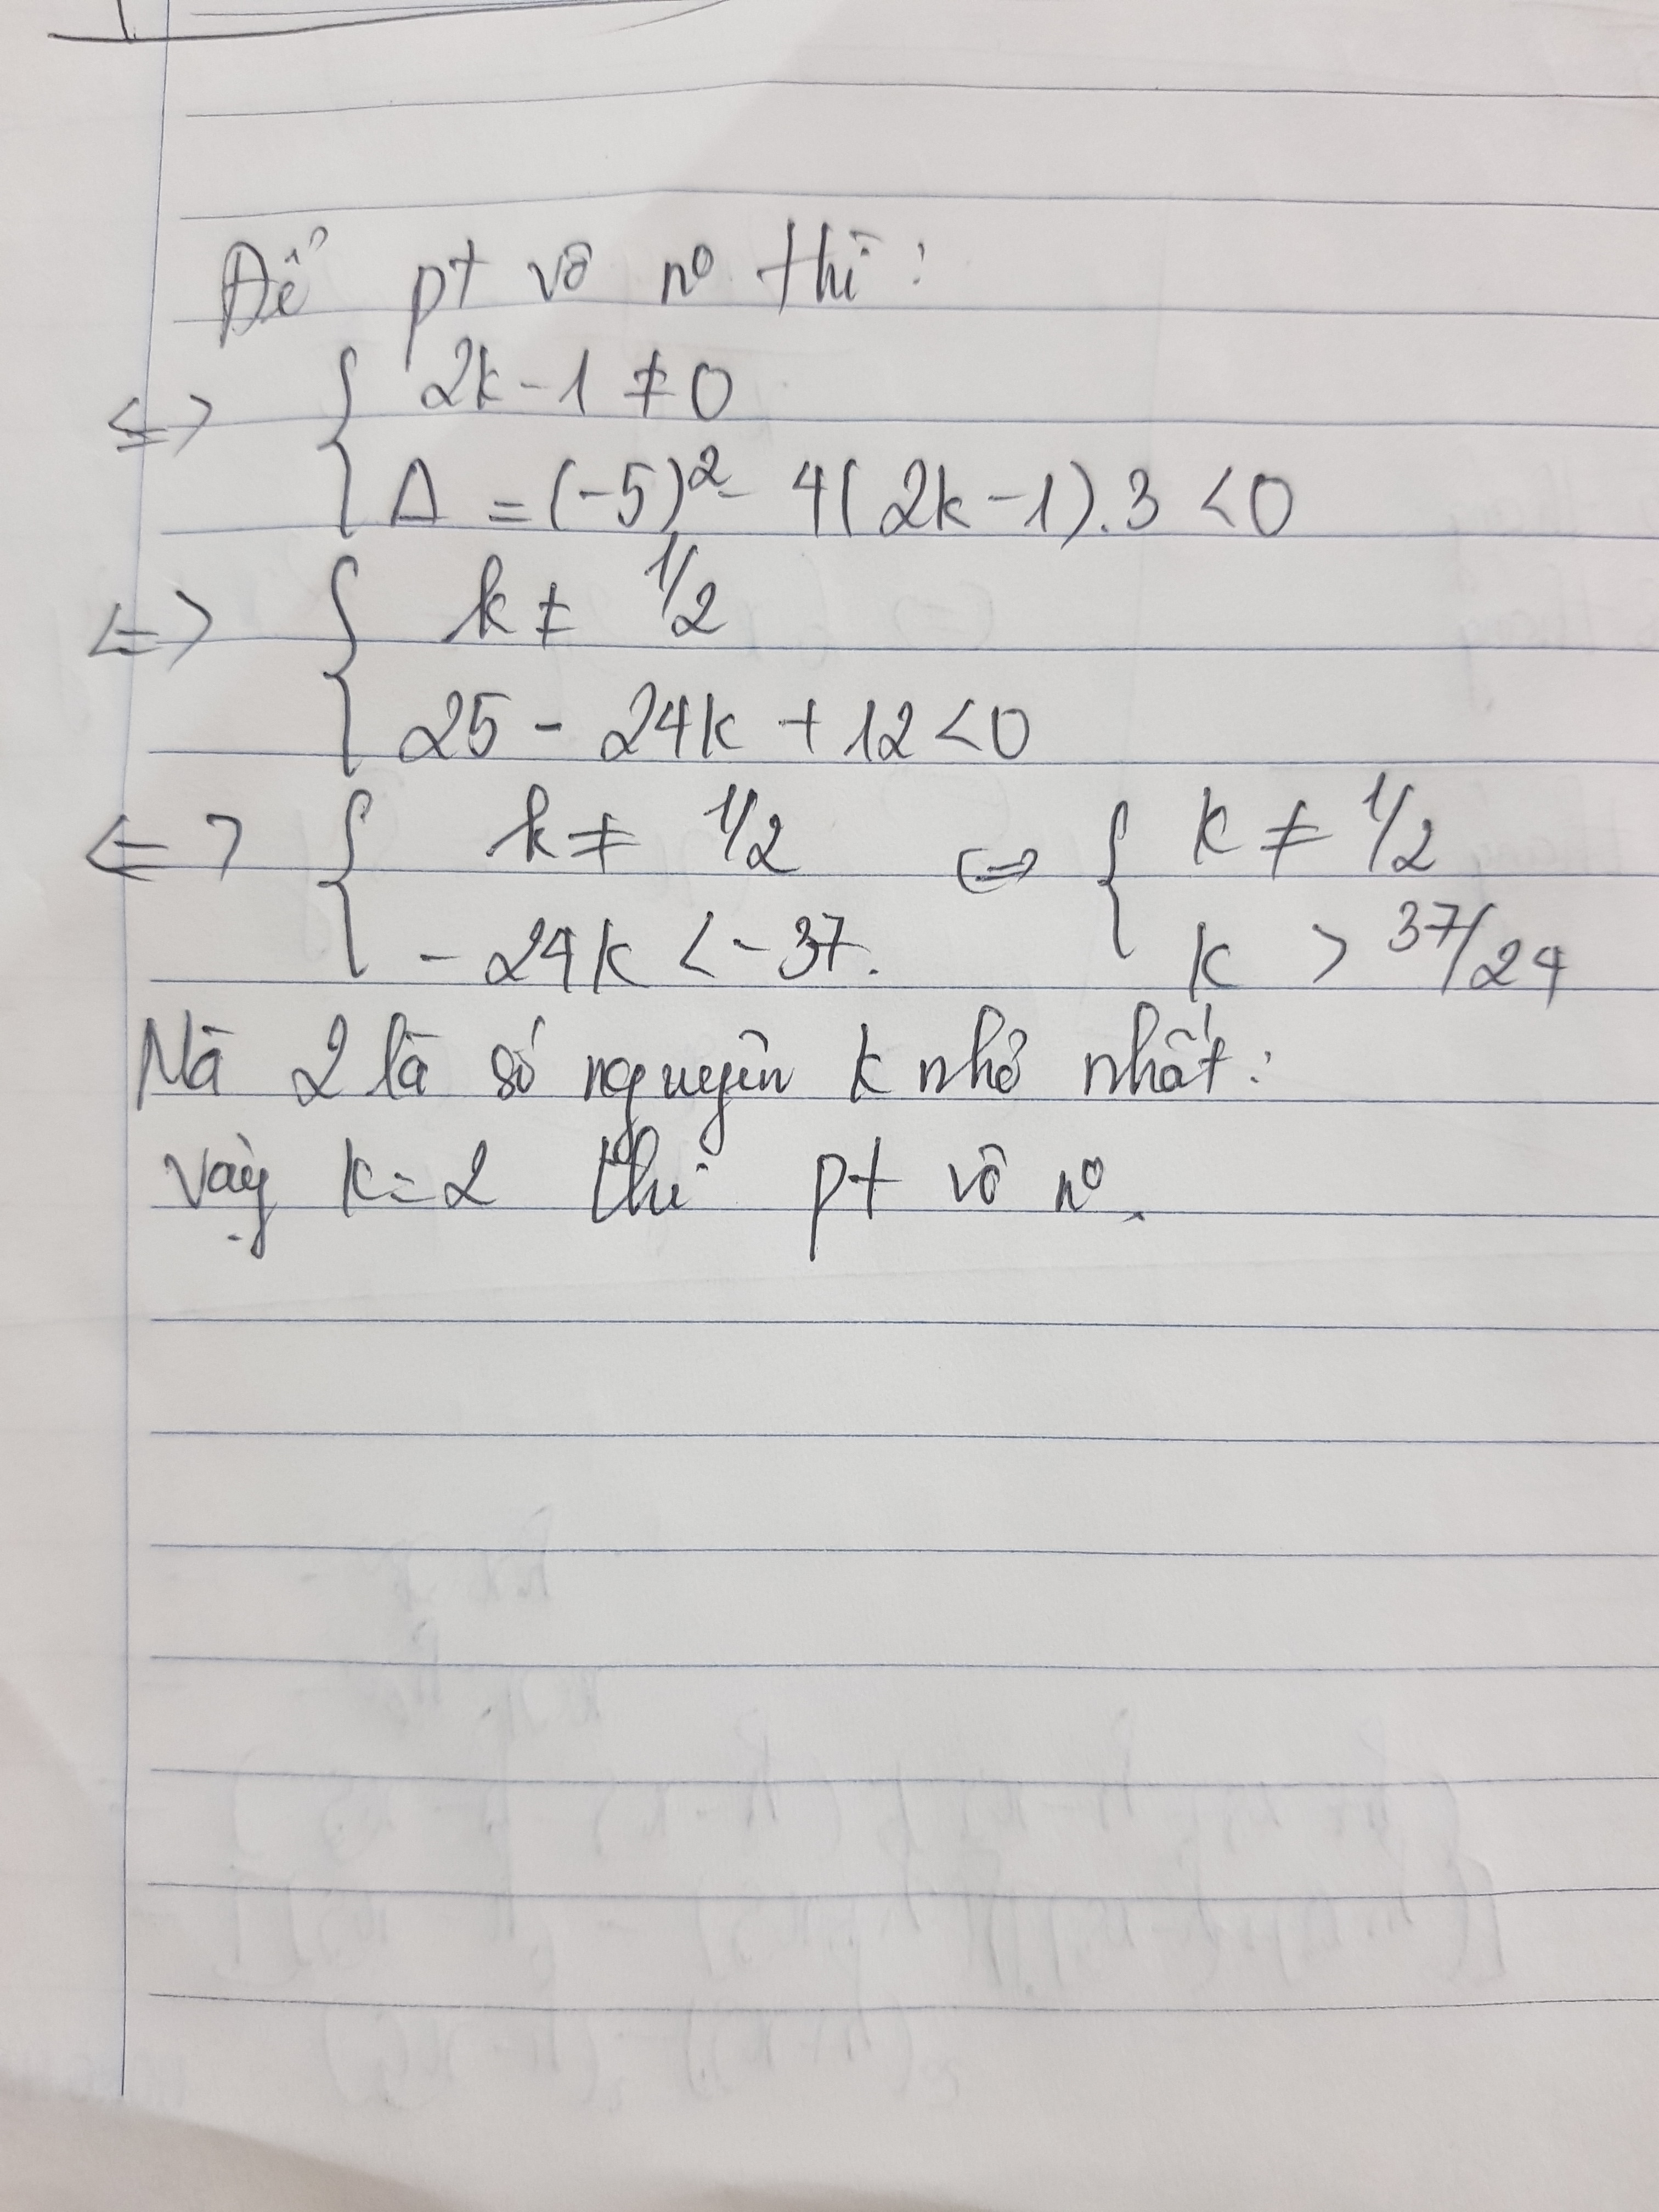 Để pt vô nº thì:
<=> { 2k-1 ≠ 0
Δ = (-5)² - 4(2k-1).3 <0
<=> { k ≠ 1/2
25 - 24k + 12 <0
<=> { k ≠ 1/2 <=> { k ≠ 1/2
-24k < -37. k > 37/24
Mà 2 là số nguyên k nhỏ nhất:
Vậy k=2 thì pt vô nº.